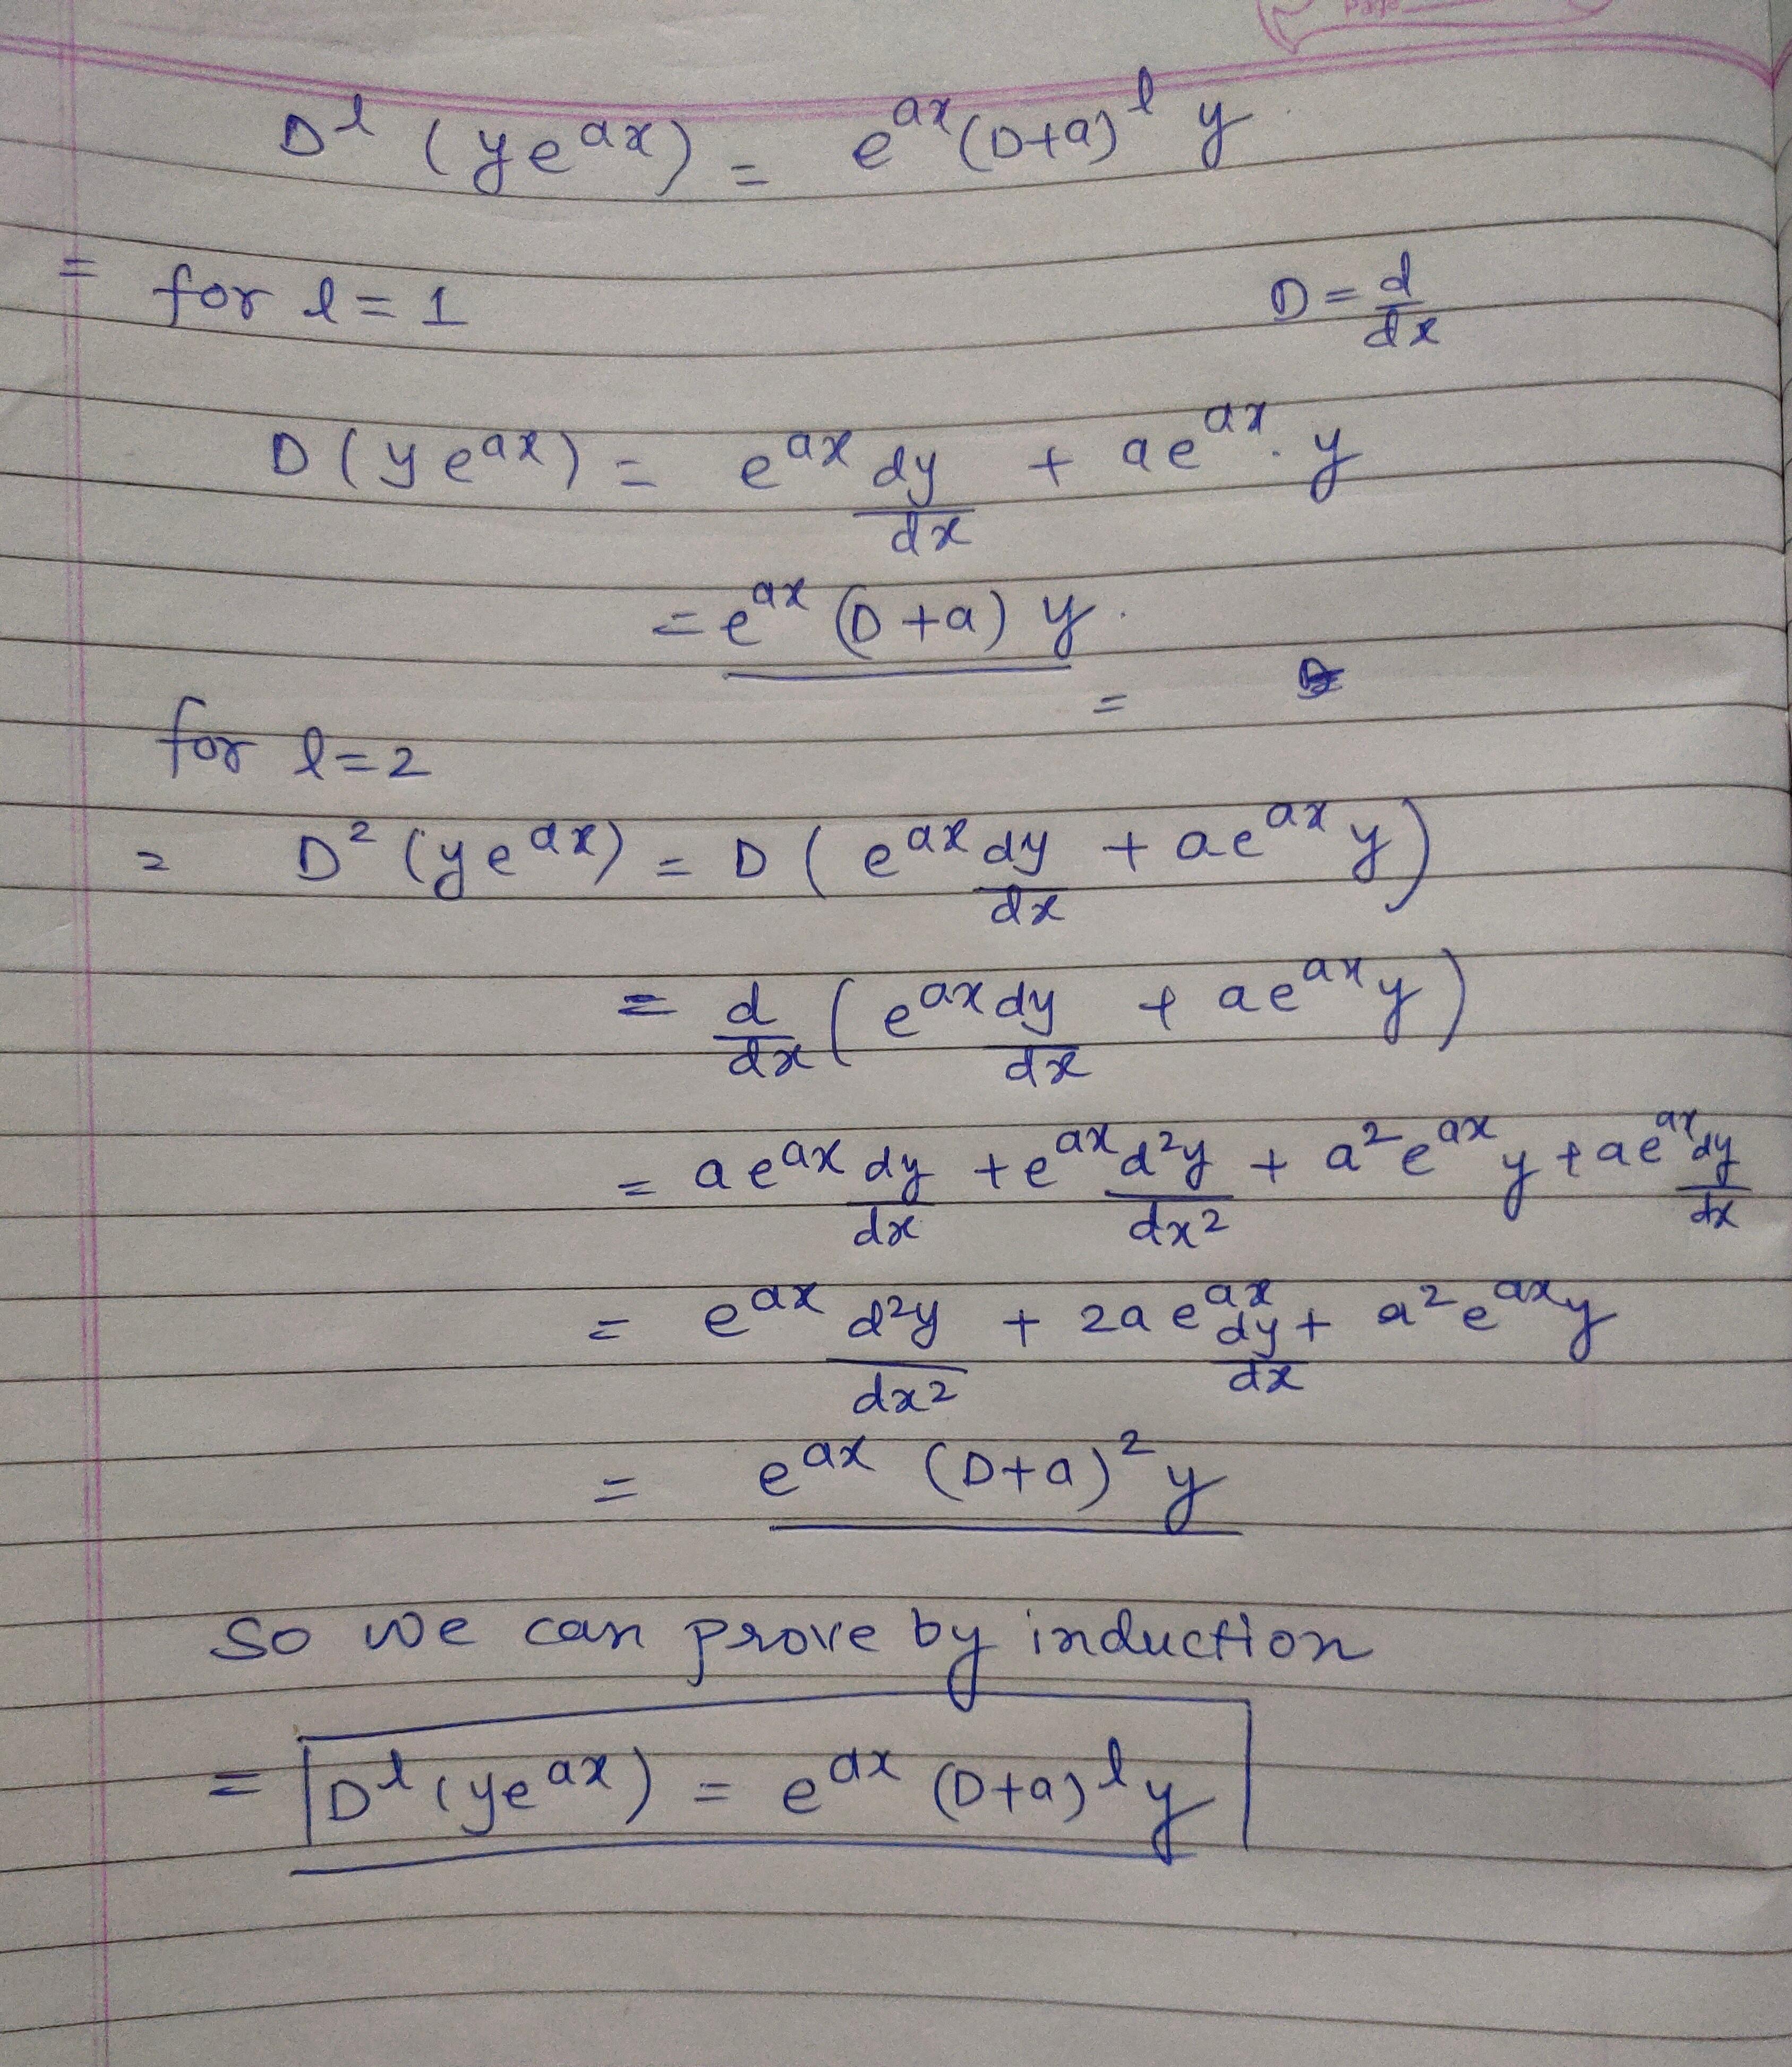 D^l (ye^{ax}) = e^{ax}(D+a)^l y
= for l = 1 D = d/dx
D(ye^{ax}) = e^{ax} dy/dx + ae^{ax}. y
= e^{ax} (D+a) y.
=
for l=2
= D² (ye^{ax}) = D ( e^{ax} dy/dx + ae^{ax} y)
= d/dx ( e^{ax} dy/dx + ae^{ax} y)
= ae^{ax} dy/dx + e^{ax} d²y/dx² + a²e^{ax} y + ae^{ax} dy/dx
= e^{ax} d²y/dx² + 2ae^{ax} dy/dx + a²e^{ax} y
= e^{ax} (D+a)² y
so we can prove by induction
= D^l (ye^{ax}) = e^{ax} (D+a)^l y